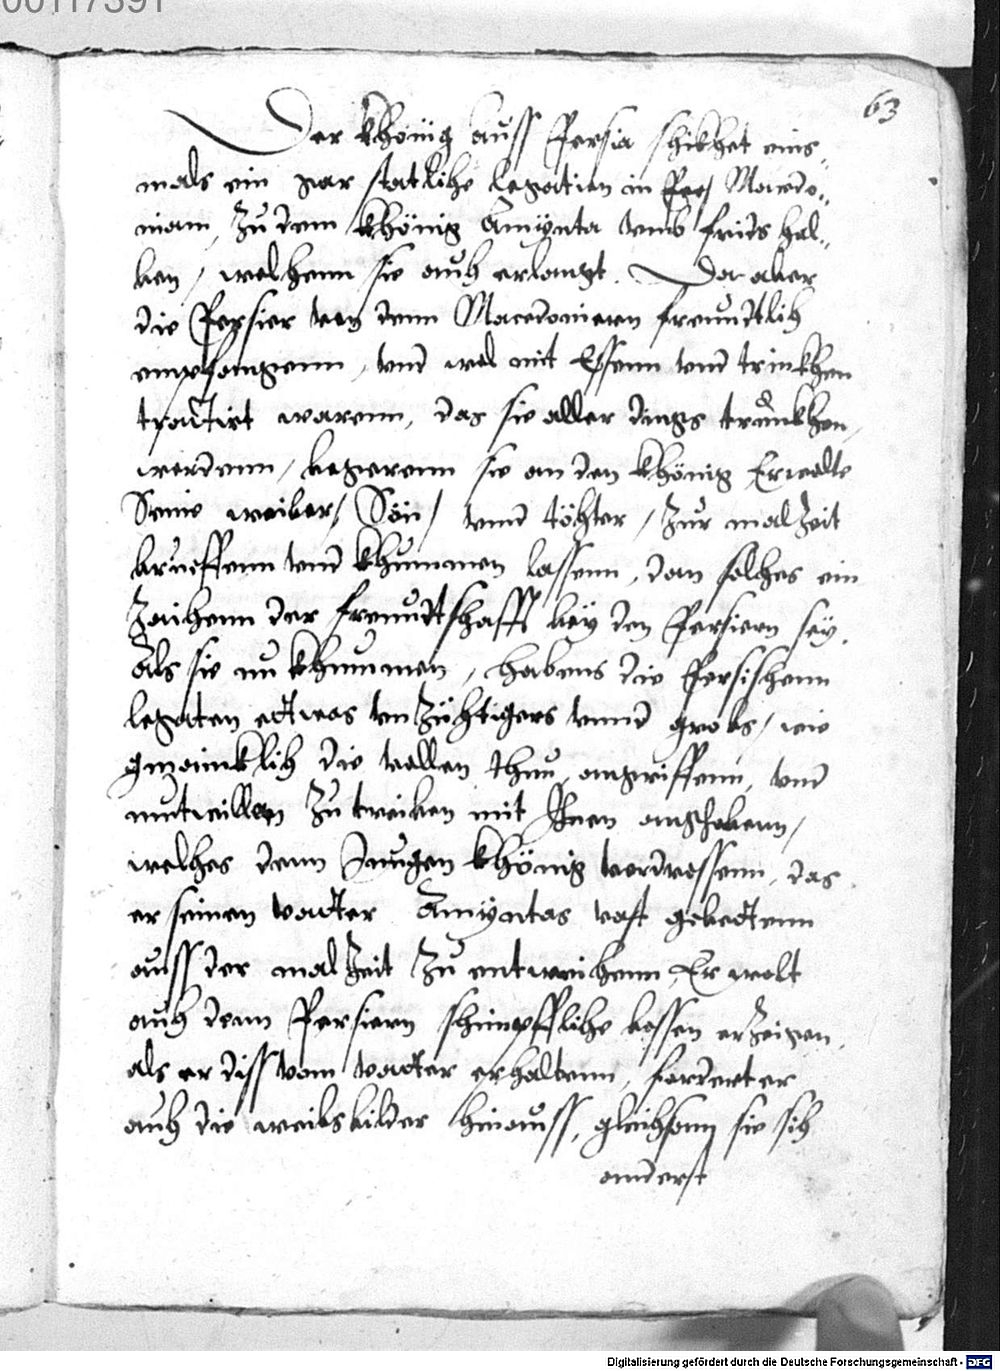 00117391
63
Der khönig auss Persia shikhet eins„
mals ein par statlihe legation in Macedo„
niam, zu dem khönig Amÿnta umb frids hal„
ben, welhenn sie auh erlangt. Da aber
die Persier von denn Macedoniern freundtlih
empfangenn, und wol mit Essenn und trinkhen
tractirt warenn, das sie aller dings trunkhen,
werdenn, begerenn sie an den khönig Er wolte
Seine weiber, Sön, unnd töhter, zur malzeit
berueffenn und khummen lassenn, dan solhes ein
zaihenn der freundtshafft beÿ den Persiern seÿ.
Als sie nu khummen, habens die Persishenn
legaten etwas unzühtigers unnd grobs, wie
gmainklih die vollen thun, angriffenn, und
mutwillen zu treiben mit Ihnen anghobenn,
welhes denn Jungen khönig verdrossenn, das
er seinen vatter Amÿntas vast gebettenn
auss der malzeit zu entweihenn, Er wolt
auh denn Persiern shimpfflihe bossen erzeigen.
als er diss vom vatter erhaltenn, fordert er
auh die weibsbilder hinauss, gleihsam sie sih
anderst
Digitalisierung gefördert durch die Deutsche Forschungsgemeinschaft - DFG